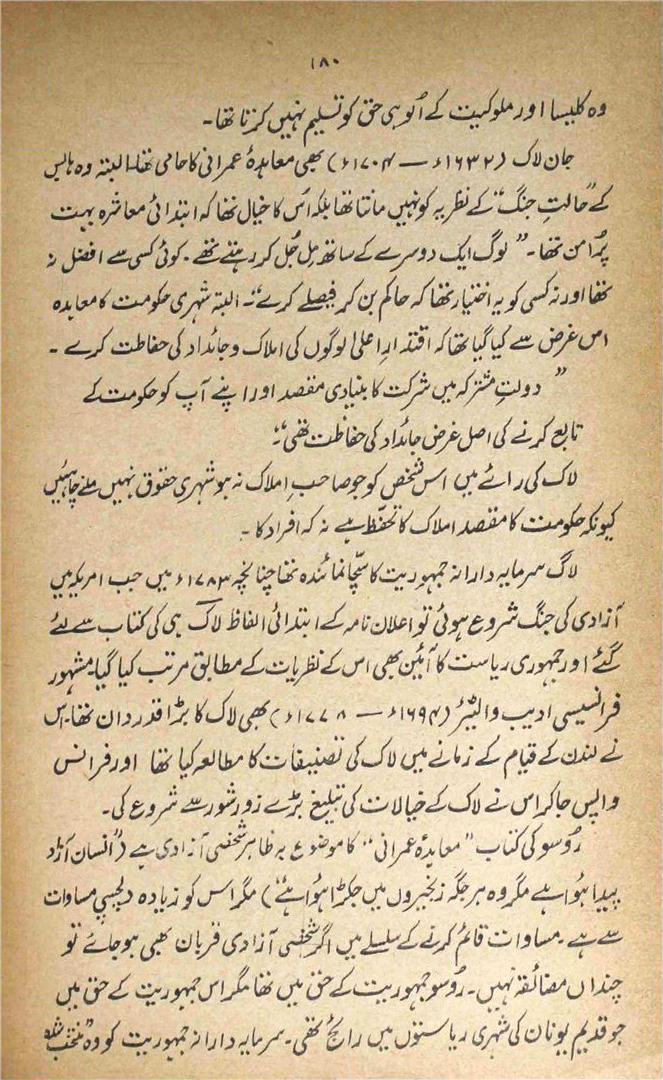 ۱۸۰
وہ کلیسا اور ملوکیت کے اُلوہی حق کو تسلیم نہیں کرتا تھا۔
جان لاک (۱۶۳۲ء — ۱۷۰۴ء) بھی معاہدۂ عمرانی کا حامی تھا۔ البتہ وہ ہابس
کے ”حالتِ جنگ“ کے نظریہ کو نہیں مانتا تھا بلکہ اُس کا خیال تھا کہ ابتدائی معاشرہ بہت
پُرامن تھا۔ ”لوگ ایک دوسرے کے ساتھ مِل جُل کر رہتے تھے۔ کوئی کسی سے افضل نہ
تھا اور نہ کسی کو یہ اختیار تھا کہ حاکم بن کر فیصلے کرے“۔ البتہ شہری حکومت کا معاہدہ
اس غرض سے کیا گیا تھا کہ اقتدارِ اعلیٰ لوگوں کی املاک و جائداد کی حفاظت کرے۔
”دولتِ مشترکہ میں شرکت کا بنیادی مقصد اور اپنے آپ کو حکومت کے
تابع کرنے کی اصل غرض جائداد کی حفاظت تھی“۔
لاک کی رائے میں اس شخص کو جو صاحبِ املاک نہ ہو شہری حقوق نہیں ملنے چاہئیں
کیونکہ حکومت کا مقصد املاک کا تحفّظ ہے نہ کہ افراد کا۔
لاگ سرمایہ دارانہ جمہوریت کا سچّا نمائندہ تھا چنانچہ ۱۷۸۳ء میں جب امریکہ میں
آزادی کی جنگ شروع ہوئی تو اعلان نامہ کے ابتدائی الفاظ لاک ہی کی کتاب سے لئے
گئے اور جمہوری ریاست کا آئین بھی اس کے نظریات کے مطابق مرتب کیا گیا۔ مشہور
فرانسیسی ادیب والٹیئر (۱۶۹۴ء — ۱۷۷۸ء) بھی لاک کا بڑا قدردان تھا۔ اس
نے لندن کے قیام کے زمانے میں لاک کی تصنیفات کا مطالعہ کیا تھا اور فرانس
واپس جا کر اس نے لاک کے خیالات کی تبلیغ بڑے زور شور سے شروع کی۔
رُوسو کی کتاب ”معاہدۂ عمرانی“ کا موضوع بہ ظاہر شخصی آزادی ہے (”انسان آزاد
پیدا ہُوا ہے مگر وہ ہر جگہ زنجیروں میں جکڑا ہُوا ہے“) مگر اس کو زیادہ دلچسپی مساوات
سے ہے۔ مساوات قائم کرنے کے سلسلے میں اگر شخصی آزادی قربان بھی ہو جائے تو
چنداں مضائقہ نہیں۔ رُوسو جمہوریت کے حق میں تھا مگر اس جمہوریت کے حق میں
جو قدیم یونان کی شہری ریاستوں میں رائج تھی۔ سرمایہ دارانہ جمہوریت کو وہ ”منتخب شدہ